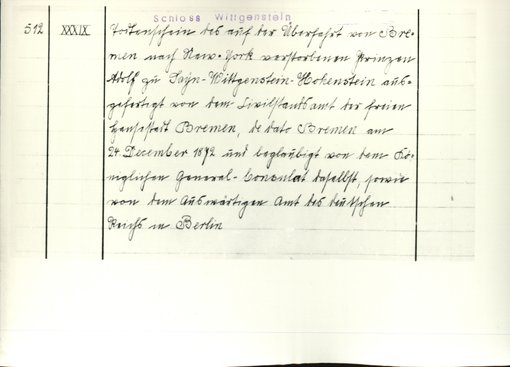 Schloss Wittgenstein
512 XXXIX Todtenschein des auf der Überfahrt von Bre-
men nach New-York verstorbenen Prinzen
Adolf zu Sayn-Wittgenstein-Hohenstein aus-
gefertigt von dem Civilstandsamt der freien
Hansestadt Bremen, de dato Bremen am
24 December 1872 und beglaubigt von dem Kö-
niglichen General-Consulat daselbst, sowie
von dem Auswärtigen Amt des deutschen
Reichs in Berlin